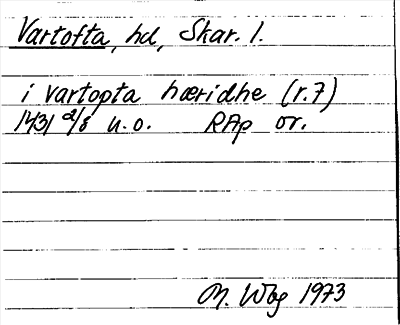 Vartofta, hd, Skar. l.
i vartopta hæridhe (r.7)
1431 2/8 u.o. RAp or.
M. Wbg 1973